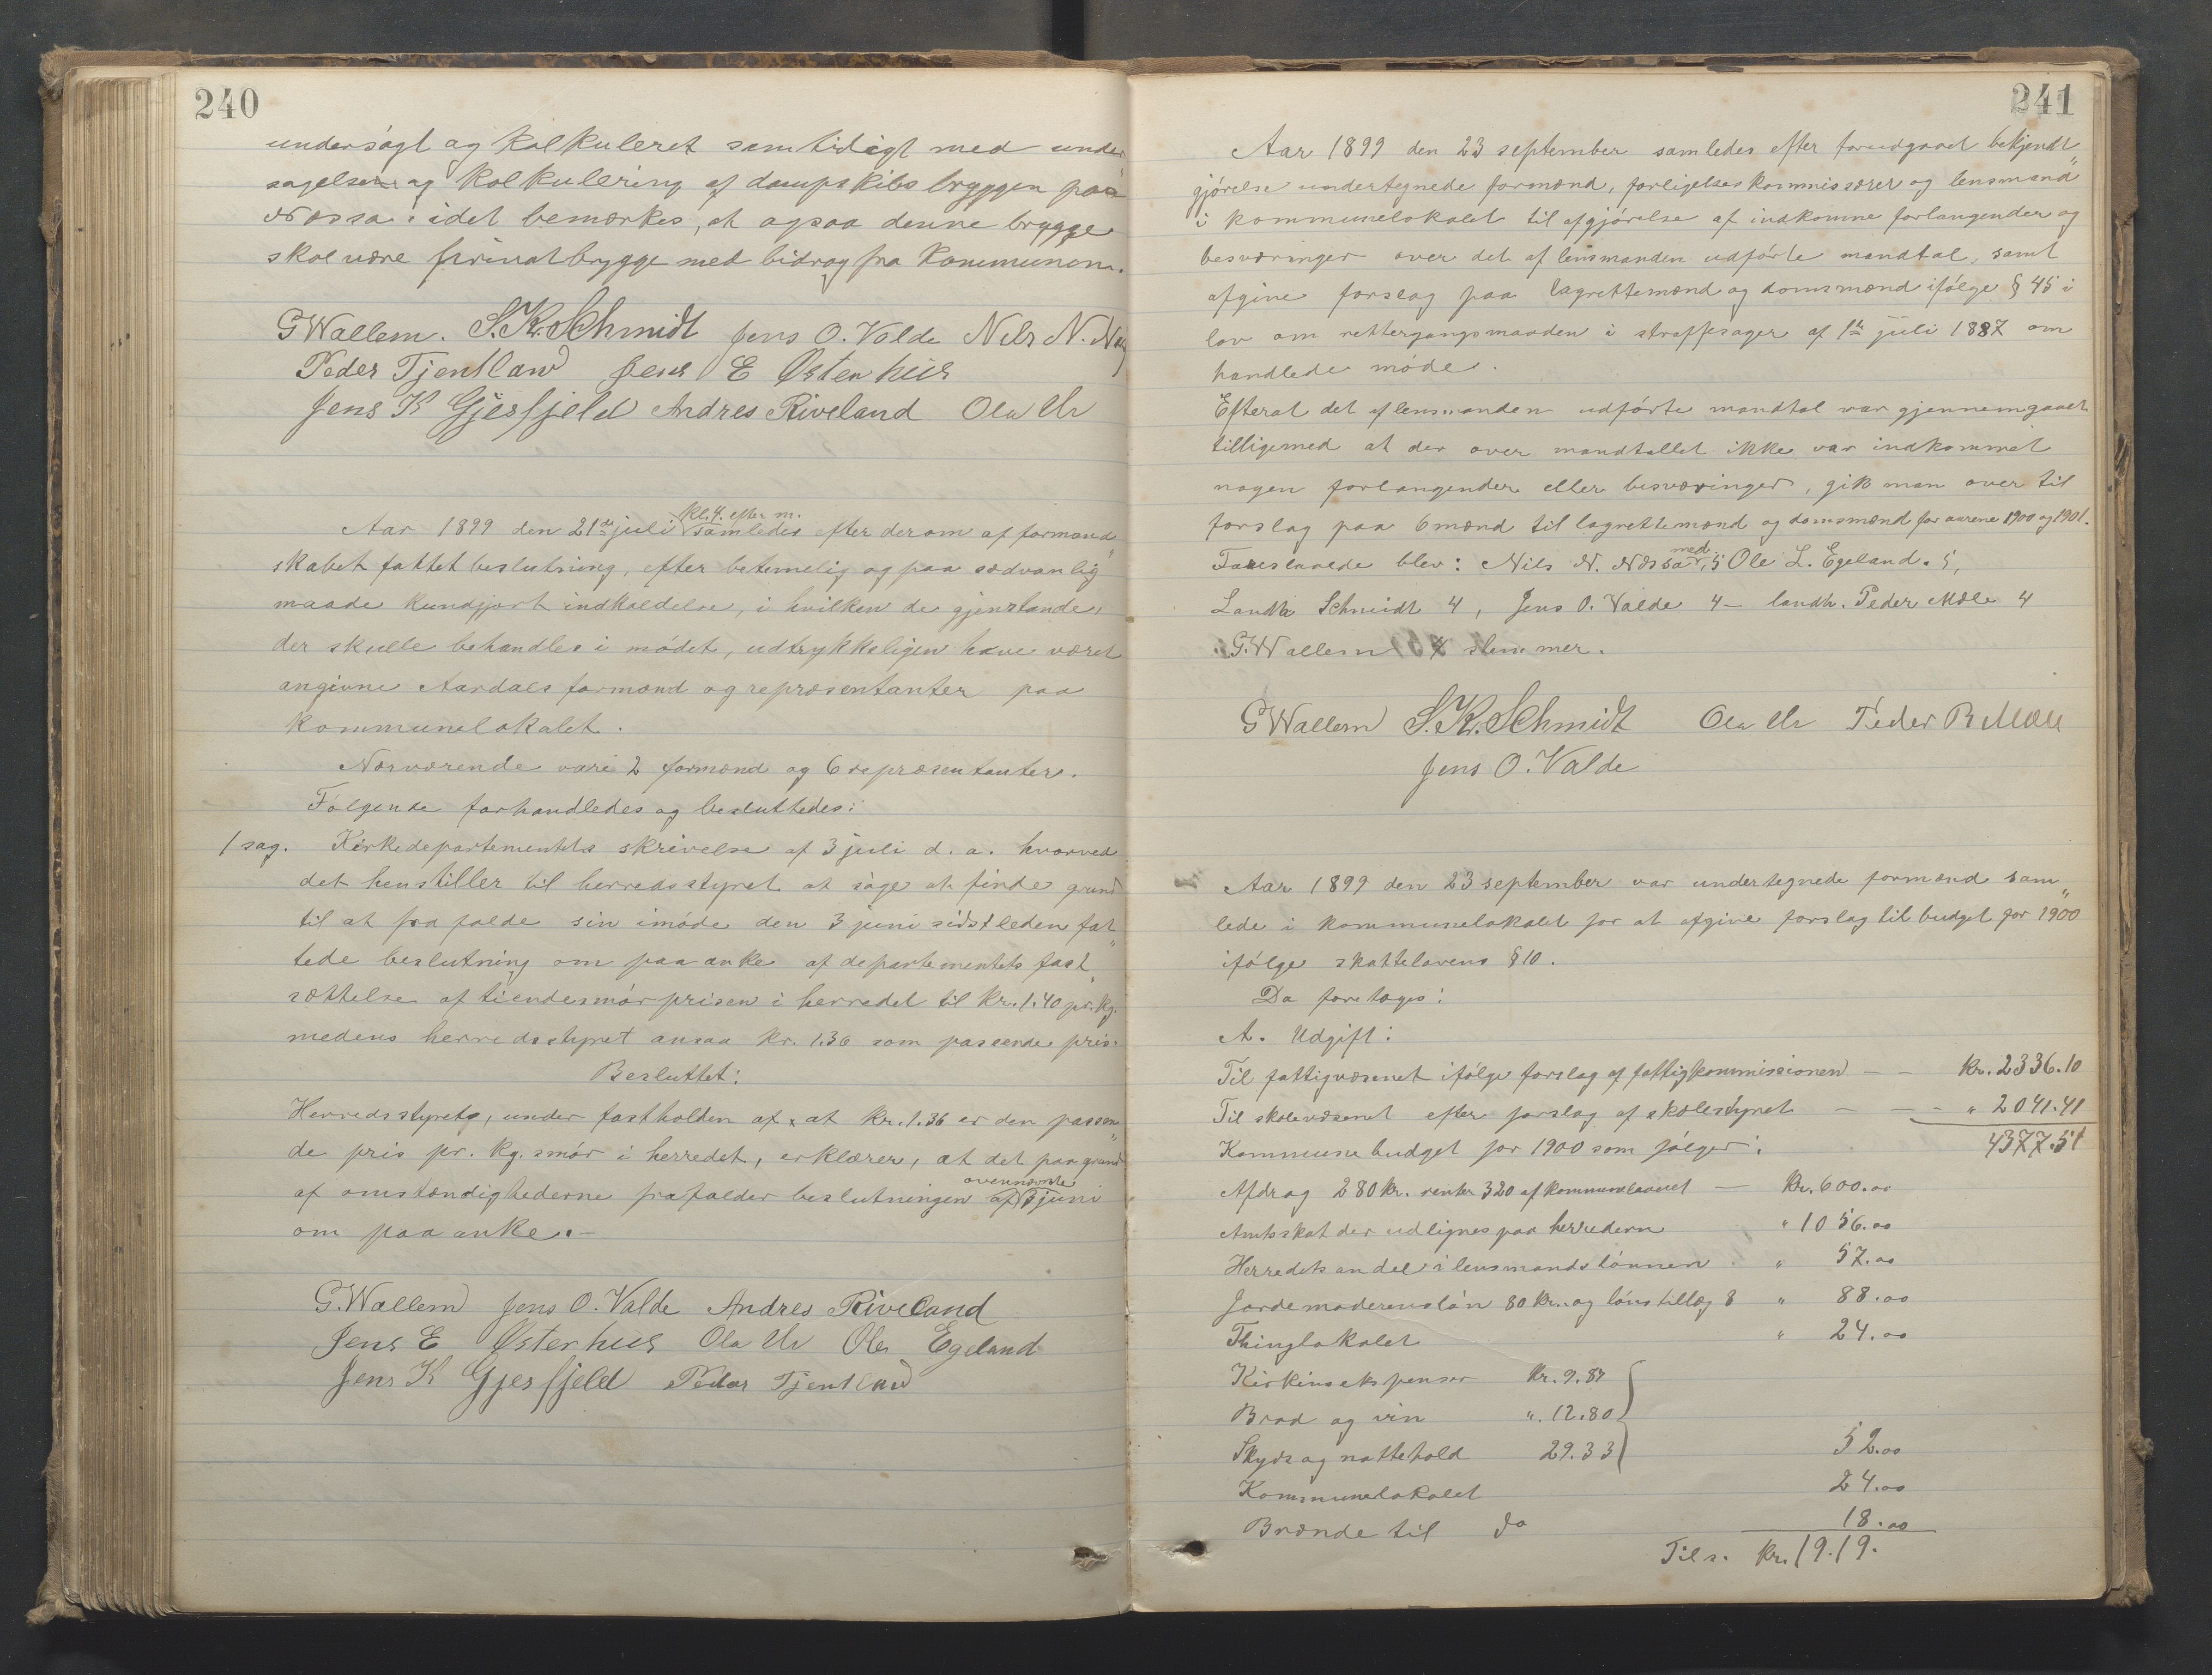 240
undersøgt og kalkuleret samtidigt med under
søgelsen og kalkulering af dampskibsbryggen paa
Nassa: idet bemærkes, at ogsaa denne brygge
skal være privatbrygge med bidrag fra Kommunen.
GWallem. S.K.Schmidt Jens O. Valde Nils N.
Peder Tjentland Jens E Østerhus
Jens K Gjesfjeld Andres Riveland Ola Ur
Kl. 4. efter m.
Aar 1899 den 21de juli samledes efter derom af formand„
skabet fattet beslutning, efter betimelig og paa sædvanlig
maade kundgjort indkaldelse, i hvilken de gjenstande,
der skulle behandles i mødet, udtrykkeligen have været
angivne Aardals formænd og repræsentanter paa
kommunelokalet.
Nærværende vare 2 formænd og 6 repræsentanter.
Følgende forhandledes og besluttedes:
1 sag. Kirkedepartementets skrivelse af 3 juli d. a. hvorved
det henstiller til herredsstyret at søge at finde grund
til at fra falde sin imøde den 3 juni sidstleden fat„
tede beslutning om paa anke af departementets fast„
sættelse af tiendesmørprisen i herredet til Kr. 1.40 pr. kg.
medens herredsstyret ansaa Kr. 1.36 som passende pris.
Besluttet:
Herredsstyret, under fastholden af, at Kr. 1.36 er den passen„
de pris pr. kg. smør i herredet, erklærer, at det paa grund
ovennævnte
af omstændighederne frafalder beslutningen af 3 juni
om paa anke.–
G.Wallem Jens O. Valde Andres Riveland
Jens E Østerhus Ola Ur Ole Egeland
Jens K Gjesfjeld Peder Tjentland
241
Aar 1899 den 23 september samledes efter forudgaaet bekjendt„
gjørelse undertegnede formænd, forligelseskommissærer og lensmand
i kommunelokalet til afgjørelse af indkomne forlangender og
besværinger over det af lensmanden udførte mandtal, samt
afgive forslag paa lagrettemænd og domsmænd ifølge § 45 i
lov om rettergangsmaaden i straffesager af 1ste juli 1887 om
handlede møde.
Efterat det af lensmanden udførte mandtal var gjennemgaaet
tilligemed at der over mandtallet ikke var indkommet
nogen forlangender eller besværinger, gik man over til
forslag paa 6 mænd til lagrettemænd og domsmænd for aarene 1900 og 1901.
Foreslaaede blev: Nils N. Nassa med 5, Ole L. Egeland. 5,
Landh. Schmidt 4, Jens O. Valde 4 – landh. Peder Mæle 4
G.Wallem 4 stemmer.
GWallem S.K.Schmidt Ola Ur Peder R Mæle
Jens O. Valde
Aar 1899 den 23 september var undertegnede formænd sam„
lede i kommunelokalet for at afgive forslag til budget for 1900
ifølge skattelovens § 10.
Da foretoges:
A. Udgift:
Til fattigvæsenet ifølge forslag af fattigkommissionen – – Kr. 2336.10
Til skolevæsenet efter forslag af skolestyret – – – „ 2041.41
4377.51
Kommune budget for 1900 som følger:
Afdrag 280 kr. renter 320 af kommunelaanet – Kr. 600.00
Amtsskat der udlignes paa herrederne „ 1056.00
Herredets andel i lensmandslønnen „ 57.00
Jordemoderens løn 80 kr. og lønstillæg 8 „ 88.00
Thinglokalet „ 24.00
Kirkins ekspenser Kr. 9.87
Brød og vin „ 12.80
Skyds og nattehold 29.33 52.00
Kommunelokalet 24.00
Brænde til do 18.00
Tils. Kr. 1919.